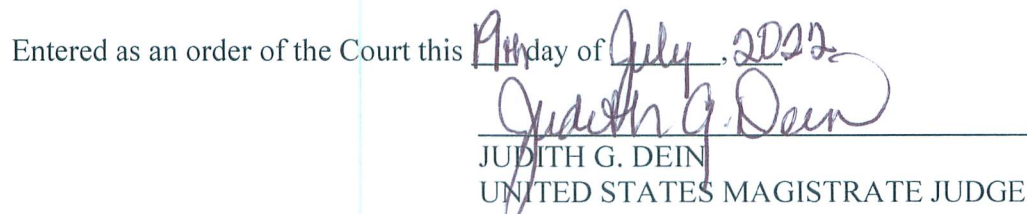 Entered as an order of the Court this 19th day of July, 2022
Judith G. Dein
JUDITH G. DEIN
UNITED STATES MAGISTRATE JUDGE